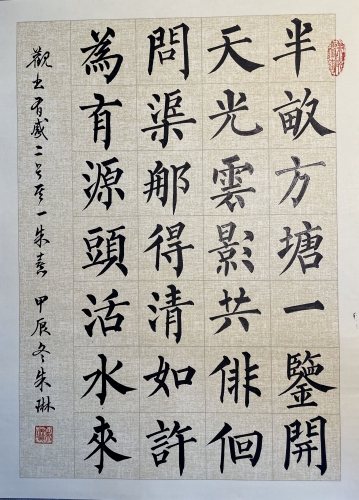 半畝方塘一鑒開
天光雲影共徘徊
問渠那得清如許
為有源頭活水來
觀書有感二首其一朱熹 甲辰冬朱琳